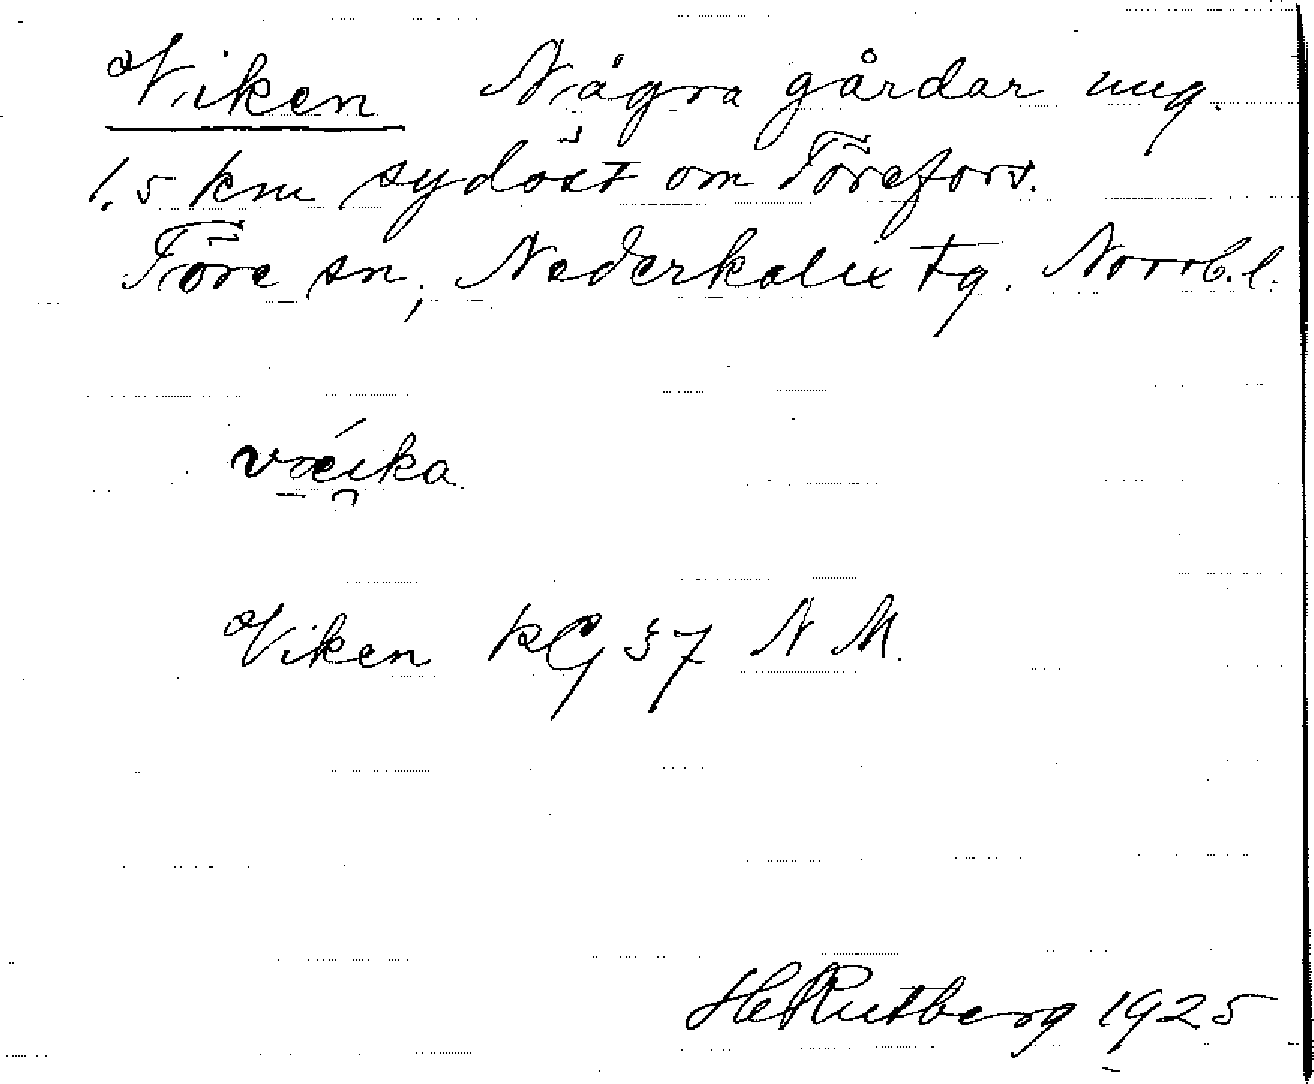 Viken Några gårdar ung.
1,5 km sydöst om Törefors.
Töre sn, Nederkalix tg. Norrb. l.
væika
Viken KG 37 N M.
H Rutberg 1925